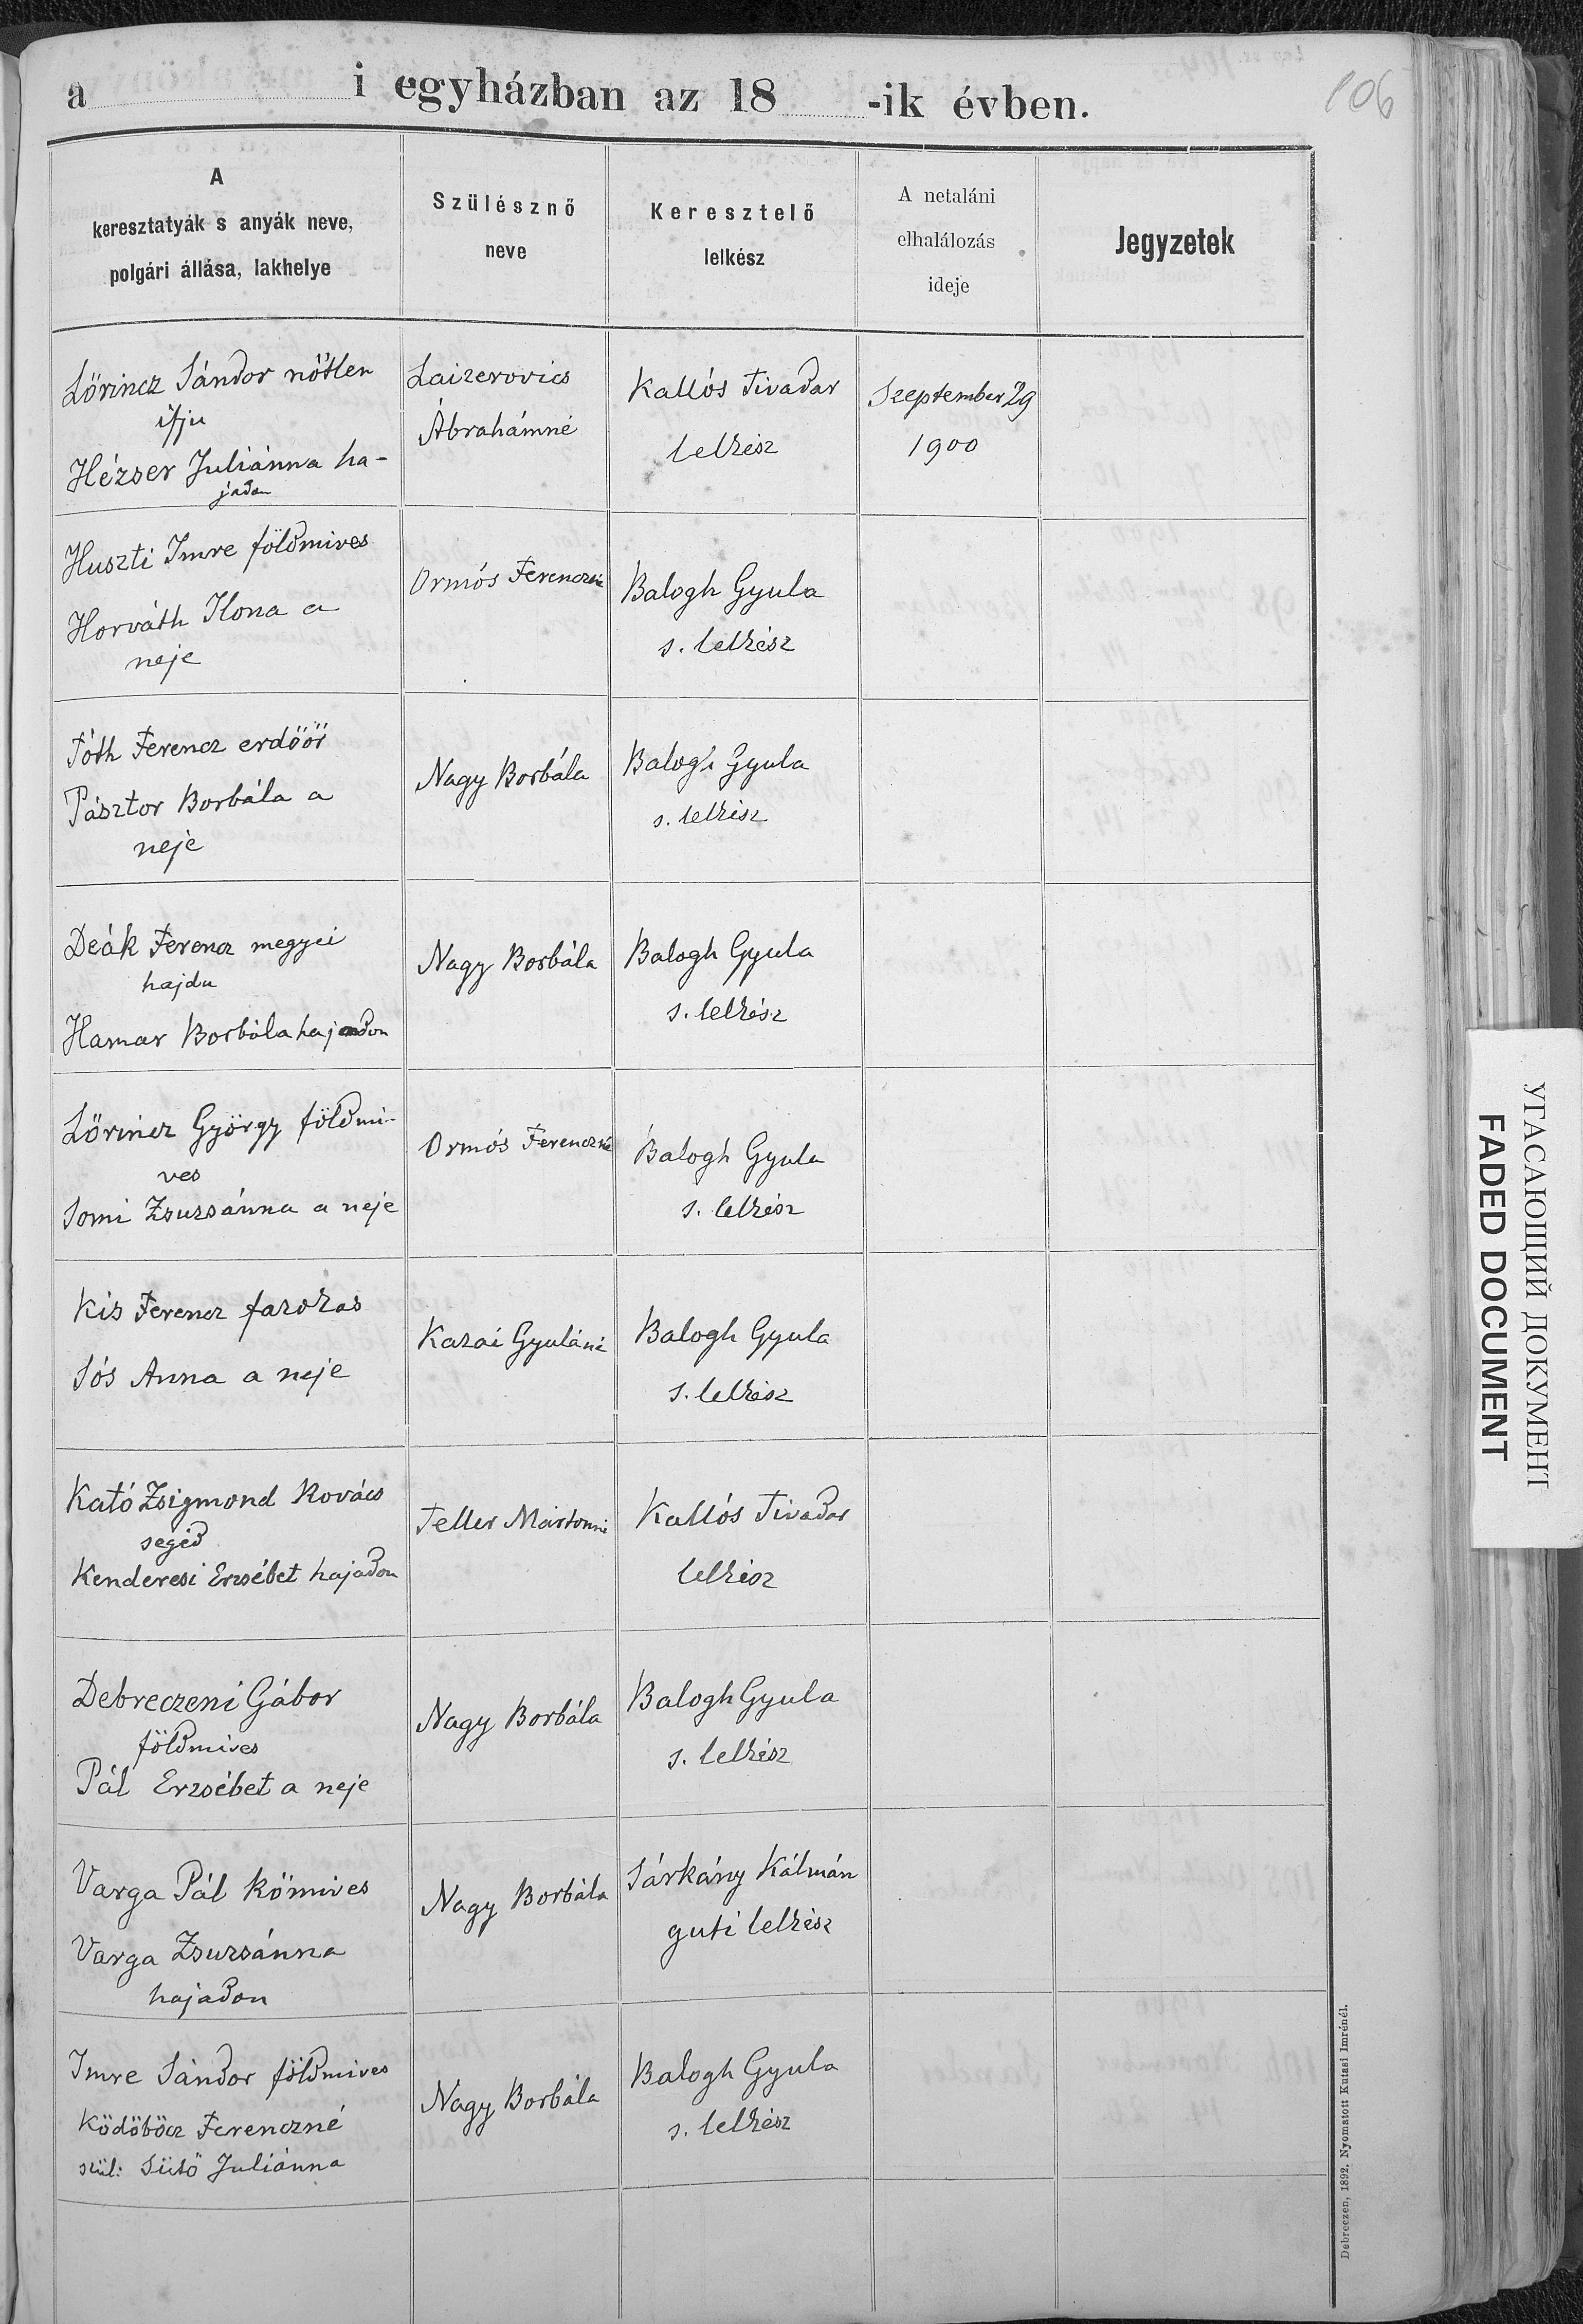 106
a i egyházban az 18 -ik évben.
A
keresztatyák s anyák neve,
polgári állása, lakhelye
Szülésznő
neve
Keresztelő
lelkész
A netaláni
elhalálozás
ideje
Jegyzetek
Lőrincz Sándor nőtlen
ifju
Hézser Juliánna ha-
jadon
Laizerovics
Ábrahámné
Kallós Tivadar
lelkész
Szeptember 29
1900
Huszti Imre földmives
Horváth Ilona a
neje
Ormós Ferenczné
Balogh Gyula
s. lelkész
Tóth Ferencz erdőőr
Pásztor Borbála a
neje
Nagy Borbála
Balogh Gyula
s. lelkész
Deák Ferencz megyei
hajdu
Hamar Borbála hajadon
Nagy Borbála
Balogh Gyula
s. lelkész
Lőrincz György földmi-
ves
Somi Zsuzsánna a neje
Ormós Ferenczné
Balogh Gyula
s. lelkész
Kis Ferencz fazekas
Sós Anna a neje
Kazai Gyuláné
Balogh Gyula
s. lelkész
Kató Zsigmond kovács
segéd
Kenderesi Erzsébet hajadon
Teller Mártonné
Kallós Tivadar
lelkész
Debreczeni Gábor
földmives
Pál Erzsébet a neje
Nagy Borbála
Balogh Gyula
s. lelkész
Varga Pál kőmives
Varga Zsuzsánna
hajadon
Nagy Borbála
Sárkány Kálmán
guti lelkész
Imre Sándor földmives
Ködöböcz Ferenczné
szül: Sütő Juliánna
Nagy Borbála
Balogh Gyula
s. lelkész
Debreczen, 1892. Nyomatott Kutasi Imrénél.
УГАСАЮЩИЙ ДОКУМЕНТ
FADED DOCUMENT